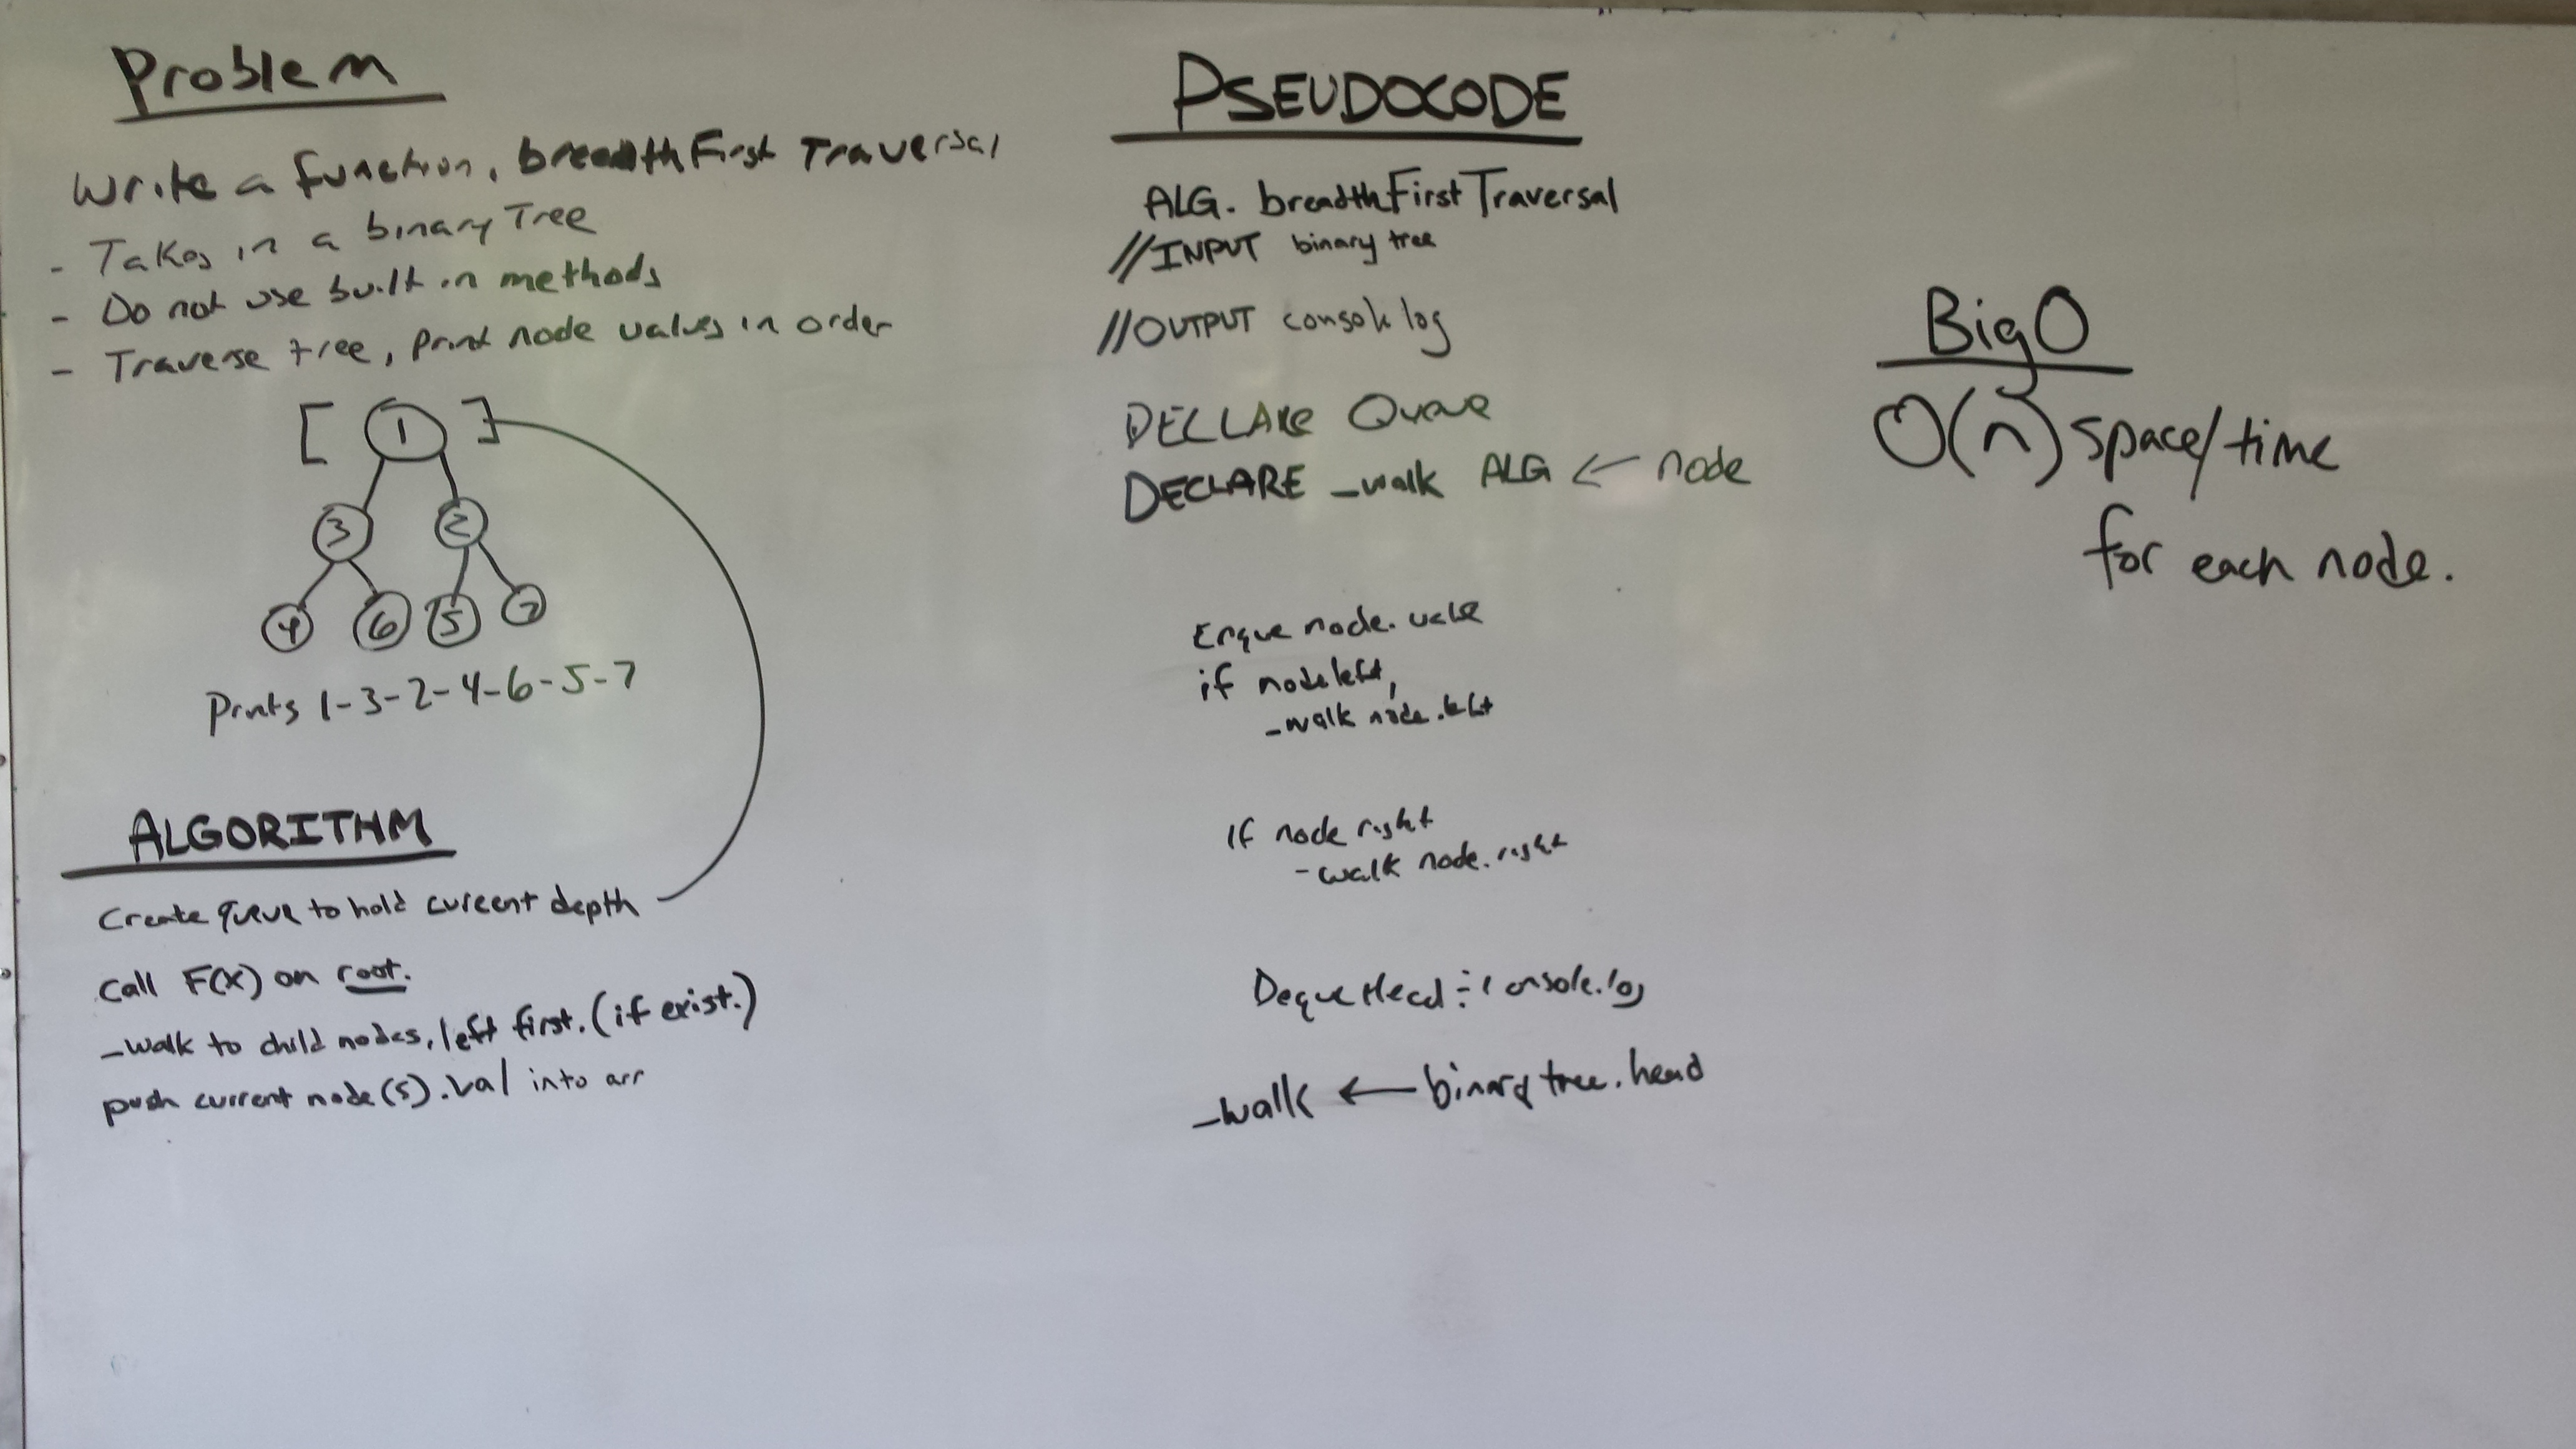 Problem
Write a function, breadthFirst Traversal
- Takes in a binary Tree
- Do not use built in methods
- Traverse tree, print node values in order
[ 1 ]
3 2
4 6 5 7
Prints 1-3-2-4-6-5-7
ALGORITHM
Create queue to hold current depth
Call F(x) on root.
_walk to child nodes, left first. (if exist.)
push current node(s).val into arr
PSEUDOCODE
ALG. breadthFirstTraversal
//INPUT binary tree
//OUTPUT console log
DECLARE Queue
DECLARE _walk ALG ← node
Enque node.value
if node left,
_walk node.left
If node right
-walk node.right
Deque Head console.log
_walk ← binary tree.head
Big O
O(n) space/time
for each node.